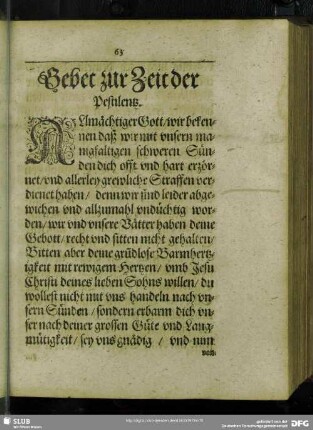 63
Gebet zur Zeit der
Pestilentz.
ALlmächtiger Gott/ wir beken-
nen daß wir mit vnsern ma-
nigfaltigen schweren Sün-
den dich offt vnd hart erzör-
net/ vnd allerley grewliche Straffen ver-
dienet haben/ denn wir sind leider abge-
wichen vnd allzumahl vndüchtig wor-
den/ wir vnd vnsere Vätter haben deine
Gebott/ recht vnd sitten nicht gehalten/
Bitten aber deine grüdlose Barmhertz-
igkeit mit rewigem Hertzen/ vmb Jesu
Christi deines lieben Sohns willen/ du
wollest nicht mit vns handeln nach vn-
sern Sünden/ sondern erbarm dich vn-
ser nach deiner grossen Güte vnd Lang-
mütigkeit/ sey vns gnädig/ vnd nim
von
SLUB
Wir führen Wissen.
gefördert von der
Deutschen Forschungsgemeinschaft
DFG